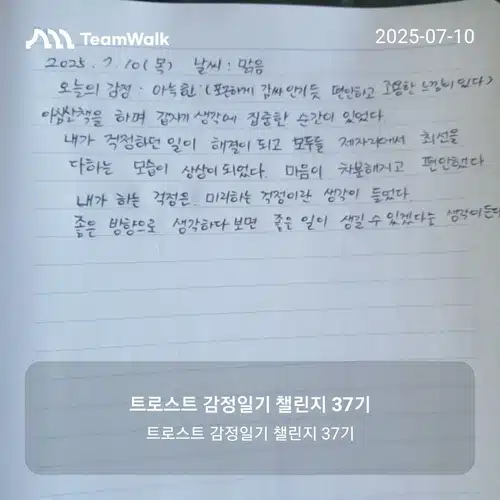 TeamWalk
2025-07-10
2025. 7. 10 (목) 날씨 : 맑음
오늘의 감정 · 아늑한 (포근하게 감싸 안기듯 편안하고 조용한 느낌이 있다)
아침산책을 하며 갑자기 생각에 집중한 순간이 있었다.
내가 걱정하던 일이 해결이 되고 모두들 제자리에서 최선을
다하는 모습이 상상이 되었다. 마음이 차분해지고 편안했다
내가 하는 걱정은 미리하는 걱정이란 생각이 들었다.
좋은 방향으로 생각하다 보면 좋은 일이 생길 수 있겠다는 생각이든다
트로스트 감정일기 챌린지 37기
트로스트 감정일기 챌린지 37기